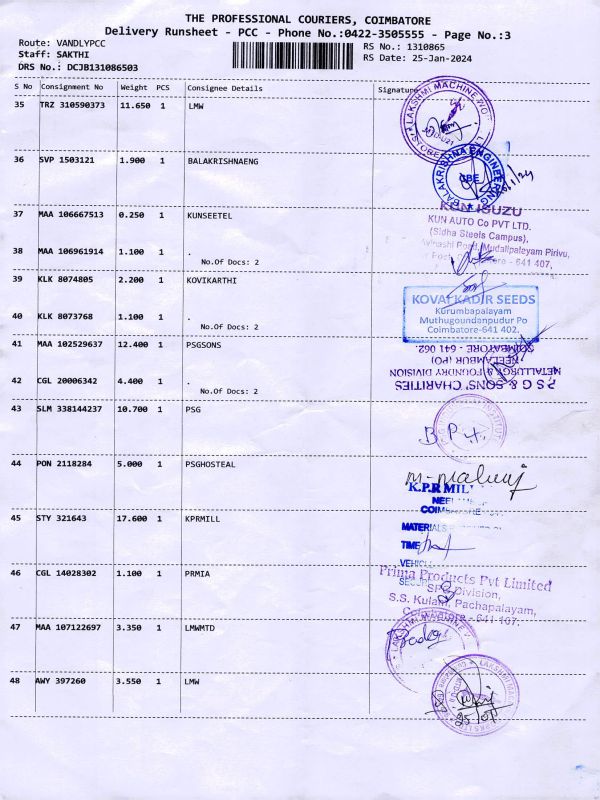 THE PROFESSIONAL COURIERS, COIMBATORE
Delivery Runsheet - PCC - Phone No.:0422-3505555 - Page No.:3
Route: VANDLYPCC
Staff: SAKTHI
DRS No.: DCJB131086503
RS No.: 1310865
RS Date: 25-Jan-2024
S No Consignment No Weight PCS Consignee Details Signature
35 TRZ 310590373 11.650 1 LMW
LAKSHMI MACHINE WO
36 SVP 1503121 1.900 1 BALAKRISHNAENG
BALAKRISHNA ENGINEERING
CBE
37 MAA 106667513 0.250 1 KUNSEETEL
KUN ISUZU
KUN AUTO Co PVT LTD.
(Sidha Steels Campus),
Avinashi Road, Mudalipaleyam Pirivu,
- 641 407,
38 MAA 106961914 1.100 1 .
No.Of Docs: 2
39 KLK 8074805 2.200 1 KOVIKARTHI
KOVAI KADIR SEEDS
Kurumbapalayam
Muthugoundanpudur Po
Coimbatore-641 402.
40 KLK 8073768 1.100 1 .
No.Of Docs: 2
41 MAA 102529637 12.400 1 PSGSONS
P S G & SONS' CHARITIES
METALLURGY & FOUNDRY DIVISION
NEELAMBUR (PO)
COIMBATORE - 641 062.
42 CGL 20006342 4.400 1 .
No.Of Docs: 2
43 SLM 338144237 10.700 1 PSG
44 PON 2118284 5.000 1 PSGHOSTEAL
45 STY 321643 17.600 1 KPRMILL
K.P.R MIL
NEEL
COIM
MATERIALS
TIME
VEHICL
SECU
46 CGL 14028302 1.100 1 PRMIA
Prima Products Pvt Limited
Division,
S.S. Kulam, Pachapalayam,
- 641 107.
47 MAA 107122697 3.350 1 LMWMTD
LAKSHMI MACHINE
48 AWY 397260 3.550 1 LMW
LAKSHMI MA
25/01